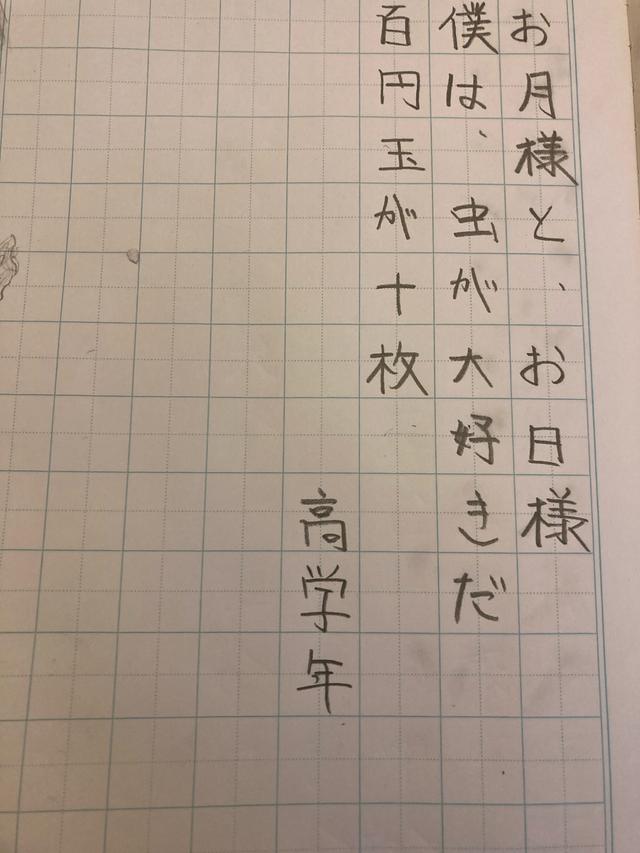 お月様と、お日様
僕は、虫が大好きだ
百円玉が十枚
高学年